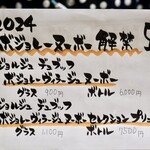 2024
ボジョレーヌーボー解禁
ジョルジュ デュブッフ
ボジョレーヴィラージュヌーボー
グラス 900円 ボトル 6,000円
ジョルジュ デュブッフ
ボジョレーヴィラージュヌーボーセレクションプリュ
グラス 1,100円 ボトル 7,500円